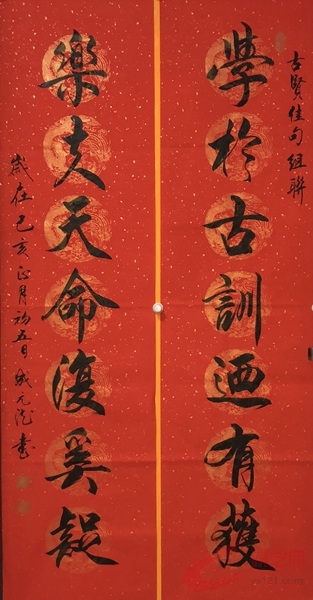 古賢佳句組聯
學於古訓廼有獲
樂夫天命復奚疑
歲在己亥正月初五日 元 書